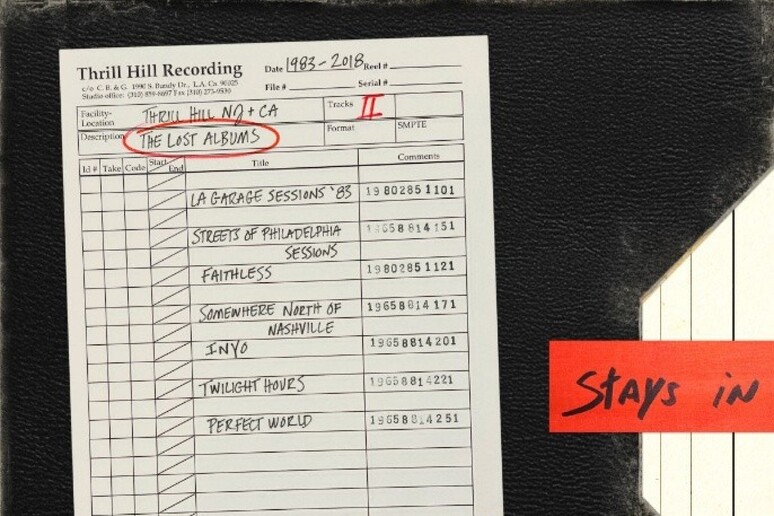 Thrill Hill Recording
Date 1983-2018 Reel #
c/o C. B. & G. 1990 S. Bundy Dr., L.A. Ca 90025
Studio office: (310) 859-8697 Fax (310) 273-9530
File # Serial #
Facility-Location THRILL HILL NJ + CA
Tracks II
Description THE LOST ALBUMS
Format SMPTE
Id # Take Code Start End Title Comments
LA GARAGE SESSIONS '83 19802851101
STREETS OF PHILADELPHIA 19658814151
SESSIONS
FAITHLESS 19802851121
SOMEWHERE NORTH OF 19658814171
NASHVILLE
INYO 19658814201
TWILIGHT HOURS 19658814221
PERFECT WORLD 19658814251
STAYS IN